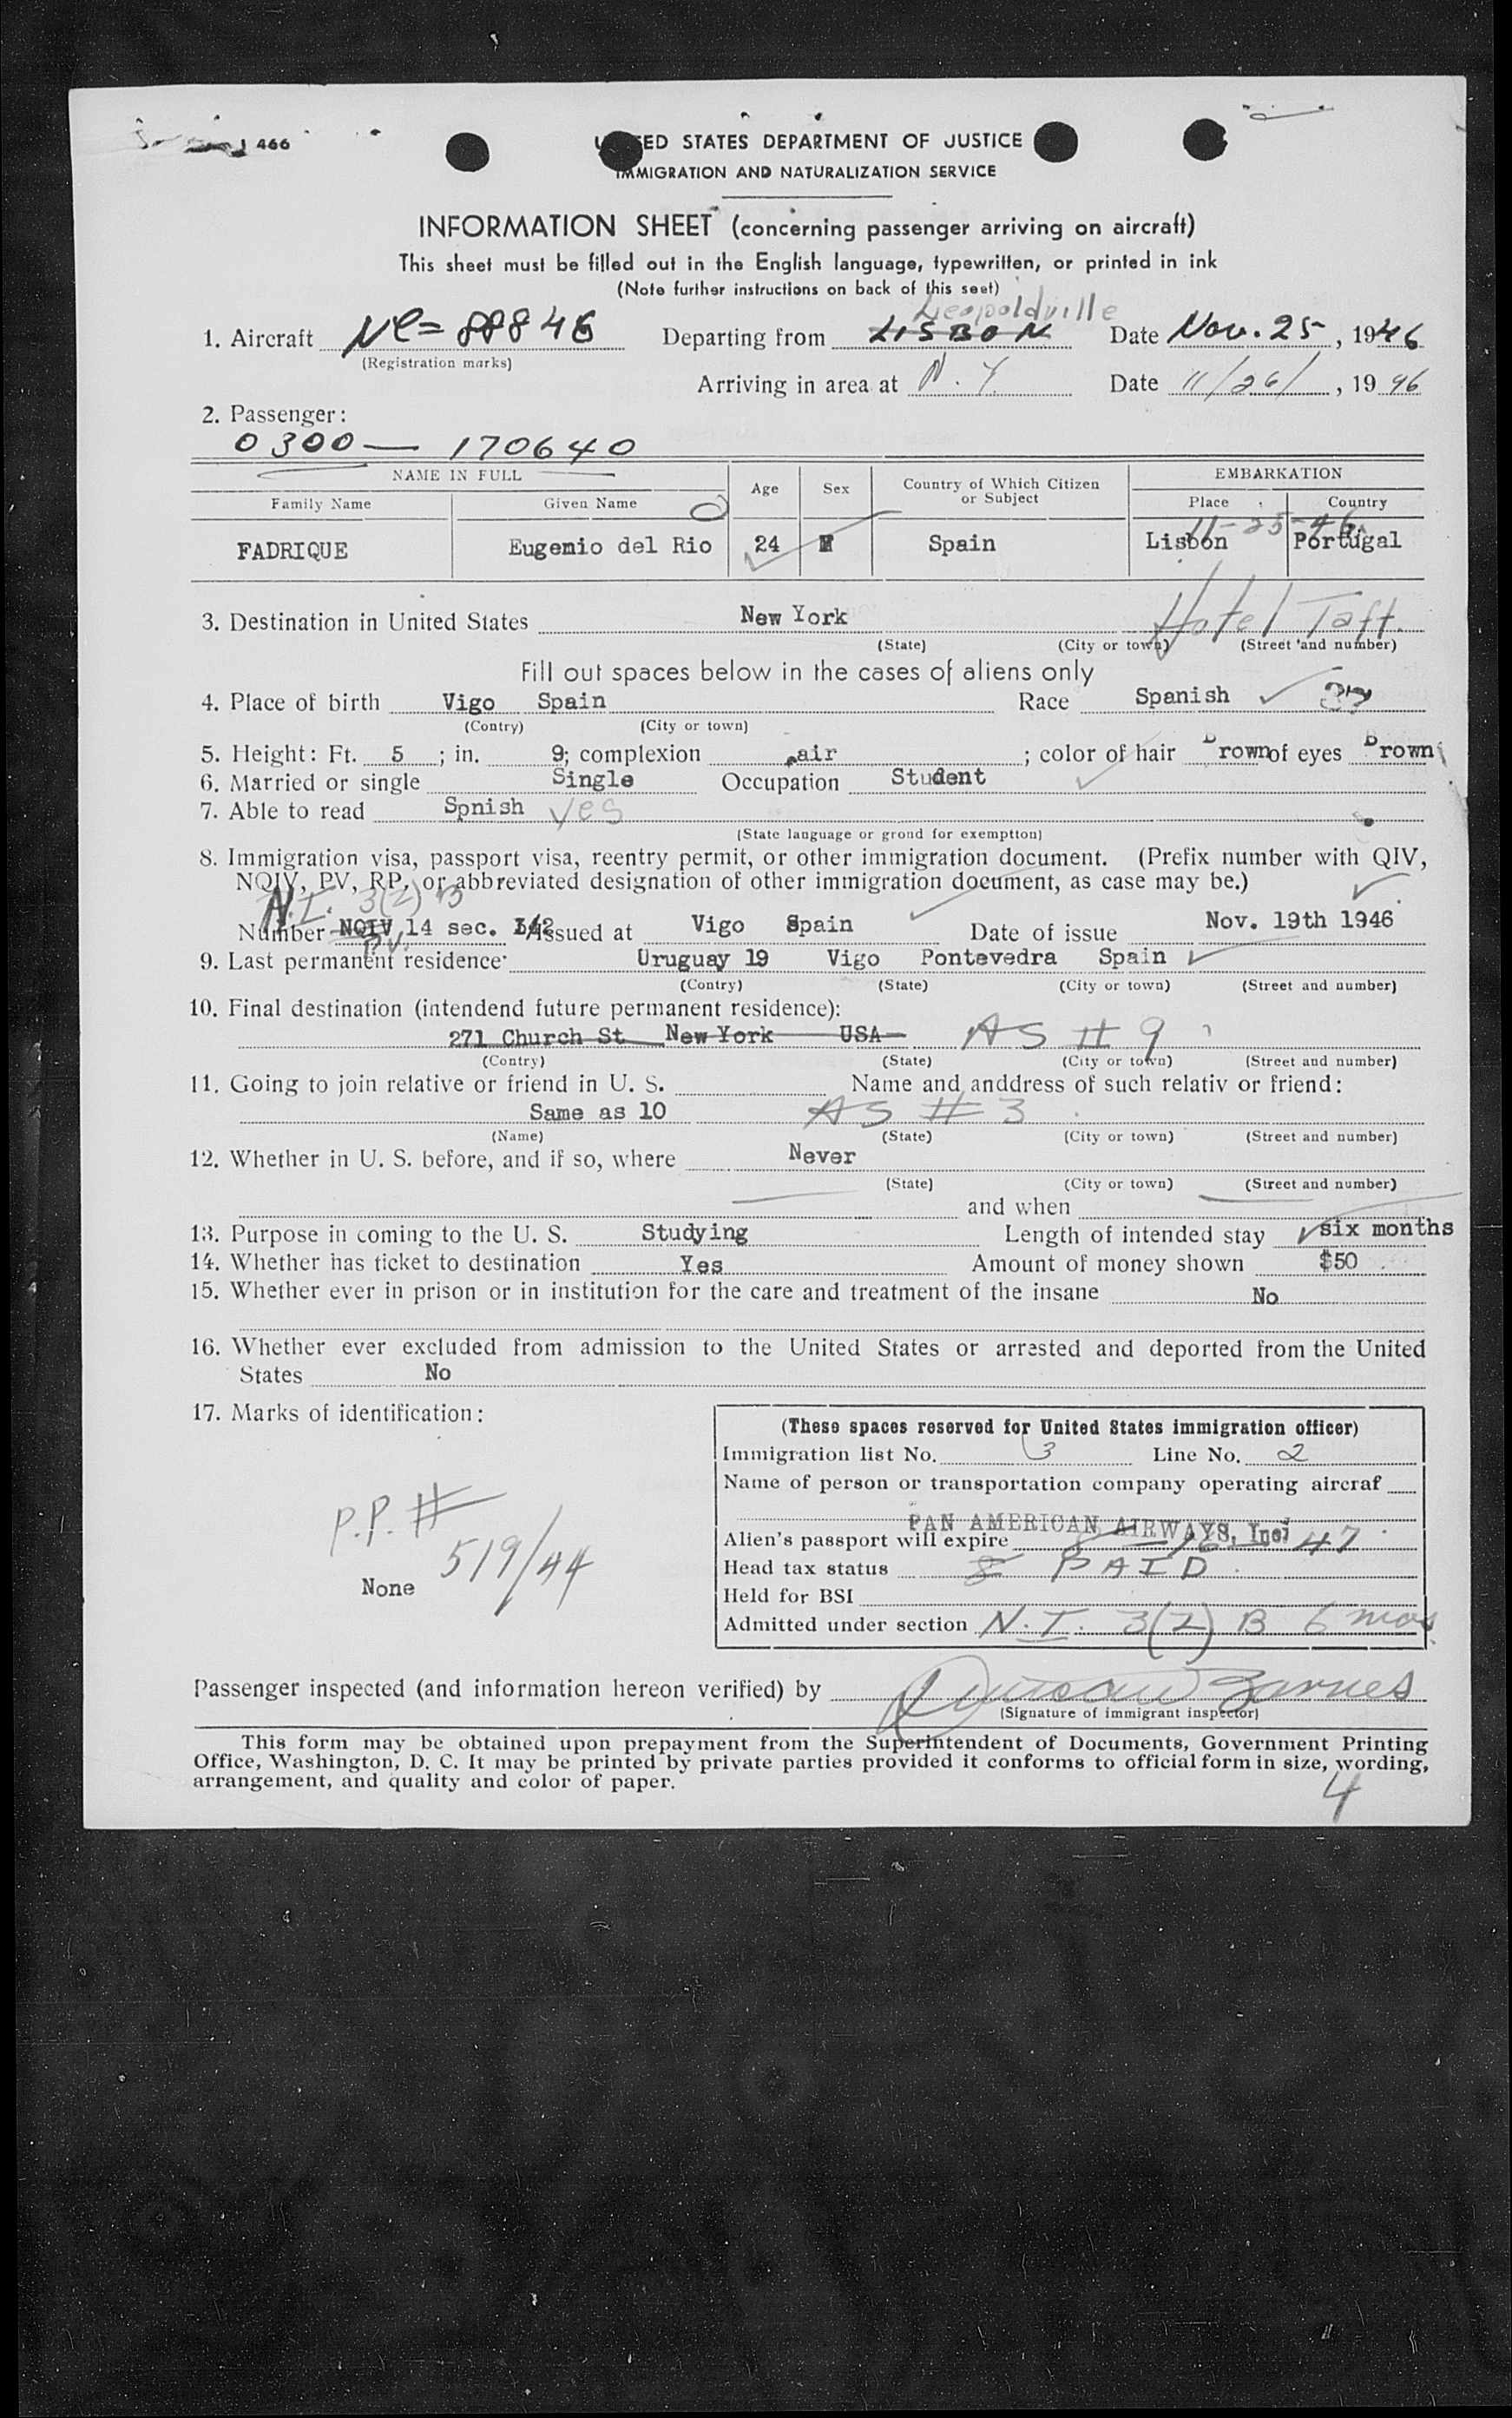 466
UNITED STATES DEPARTMENT OF JUSTICE
IMMIGRATION AND NATURALIZATION SERVICE
INFORMATION SHEET (concerning passenger arriving on aircraft)
This sheet must be filled out in the English language, typewritten, or printed in ink
(Note further instructions on back of this seet)
Leopoldville
1. Aircraft Nc= 88846 Departing from LISBON Date Nov. 25, 1946
(Registration marks)
Arriving in area at N.Y. Date 11/26/, 1946
2. Passenger:
0300— 170640
NAME IN FULL Age Sex Country of Which Citizen or Subject EMBARKATION
Family Name Given Name Place Country
11-25-46
FADRIQUE Eugenio del Rio 24 M Spain Lisbon Portugal
3. Destination in United States New York Hotel Taft.
(State) (City or town) (Street and number)
Fill out spaces below in the cases of aliens only
4. Place of birth Vigo Spain Race Spanish
(Contry) (City or town)
5. Height: Ft. 5; in. 9; complexion air; color of hair Brown of eyes Brown
6. Married or single Single Occupation Student
7. Able to read Spnish yes
(State language or grond for exemption)
8. Immigration visa, passport visa, reentry permit, or other immigration document. (Prefix number with QIV,
NQIV, PV, RP, or abbreviated designation of other immigration document, as case may be.)
N.I. 3(2) B
Number NQIV 14 sec. 3/2 Issued at Vigo Spain Date of issue Nov. 19th 1946
P.V.
9. Last permanent residence: Uruguay 19 Vigo Pontevedra Spain
(Contry) (State) (City or town) (Street and number)
10. Final destination (intendend future permanent residence):
271 Church St New York USA AS # 9
(Contry) (State) (City or town) (Street and number)
11. Going to join relative or friend in U. S. Name and anddress of such relativ or friend:
Same as 10 AS # 3
(Name) (State) (City or town) (Street and number)
12. Whether in U. S. before, and if so, where Never
(State) (City or town) (Street and number)
and when
13. Purpose in coming to the U. S. Studying Length of intended stay six months
14. Whether has ticket to destination Yes Amount of money shown $50
15. Whether ever in prison or in institution for the care and treatment of the insane No
16. Whether ever excluded from admission to the United States or arrested and deported from the United
States No
17. Marks of identification:
P.P. #
519/44
None
(These spaces reserved for United States immigration officer)
Immigration list No. 3 Line No. 2
Name of person or transportation company operating aircraf
PAN AMERICAN AIRWAYS, Inc.
Alien's passport will expire 47
Head tax status 8 PAID
Held for BSI
Admitted under section N.I. 3(2) B 6 mos.
Passenger inspected (and information hereon verified) by Duncan Barnes
(Signature of immigrant inspector)
This form may be obtained upon prepayment from the Superintendent of Documents, Government Printing
Office, Washington, D. C. It may be printed by private parties provided it conforms to official form in size, wording,
arrangement, and quality and color of paper.
4